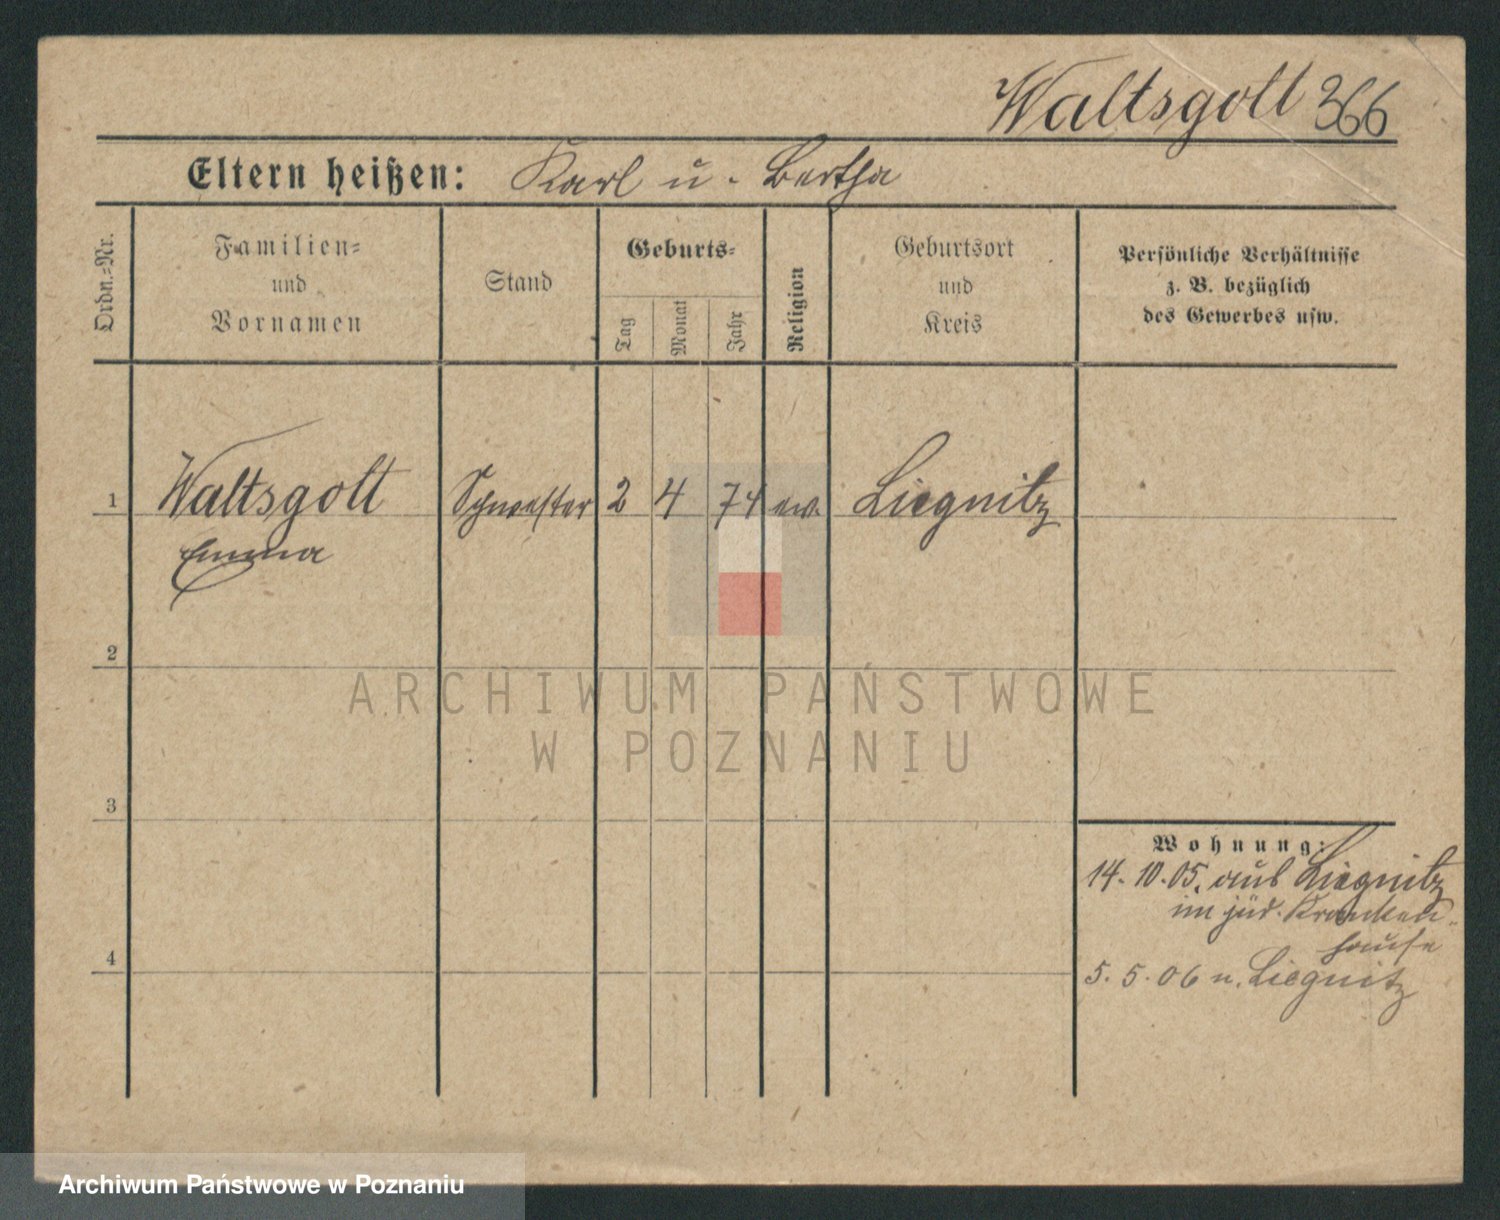 Waltsgott 366
Eltern heißen: Karl u. Bertha
Ordn.=Nr.
Familien=
und
Vornamen
Stand
Geburts=
Tag
Monat
Jahr
Religion
Geburtsort
und
Kreis
Persönliche Verhältnisse
z. B. bezüglich
des Gewerbes usw.
1 Waltsgott Schwester 2 4 74 ev. Liegnitz
Emma
2
3
4
Wohnung:
14. 10. 05. aus Liegnitz
im jüd. Kranken-
hause
5. 5. 06 n. Liegnitz
ARCHIWUM PAŃSTWOWE
W POZNANIU
Archiwum Państwowe w Poznaniu